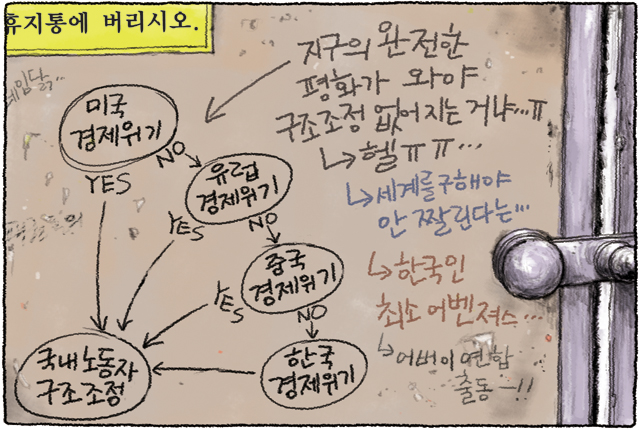 휴지통에 버리시오.
지구의 완전한
평화가 와야
구조조정 없어지는거냐...ㅠ
↳헬ㅠㅠ...
↳세계를구해야
안 짤린다는...
↳한국인
최소 어벤져스...
↳어버이연합
출동ㅡ!!
미국
경제위기
NO
YES
유럽
경제위기
NO
YES
중국
경제위기
NO
YES
한국
경제위기
국내노동자
구조조정